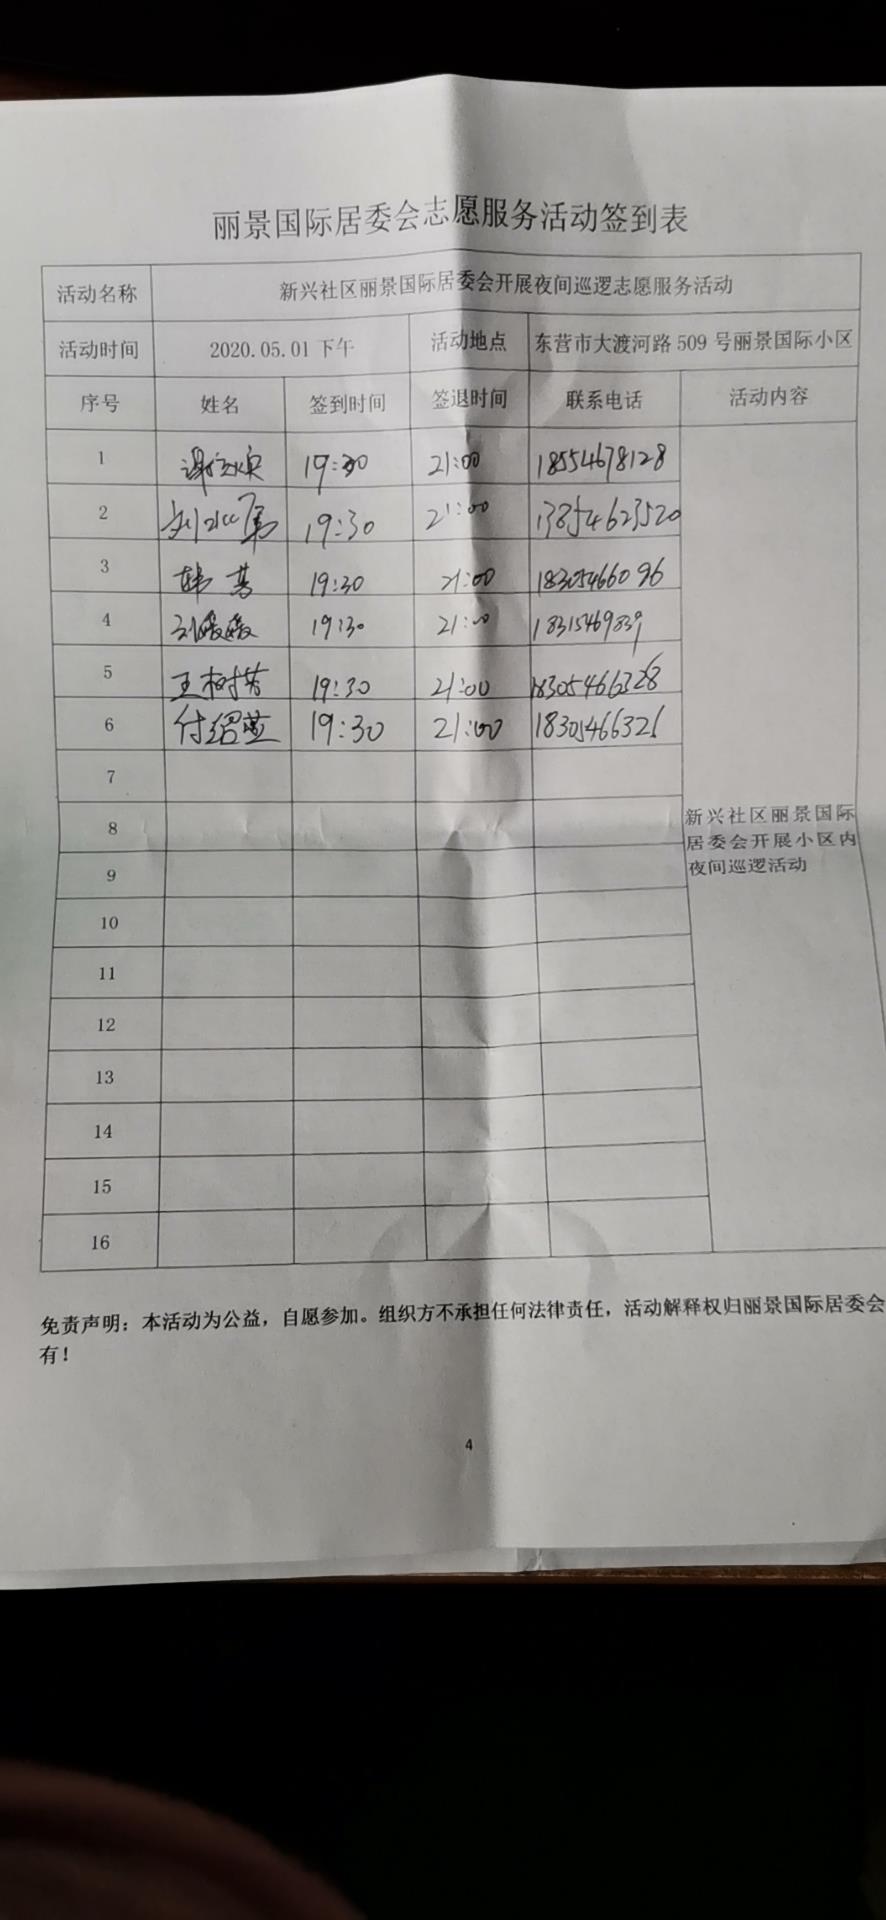 丽景国际居委会志愿服务活动签到表
活动名称 新兴社区丽景国际居委会开展夜间巡逻志愿服务活动
活动时间 2020.05.01下午 活动地点 东营市大渡河路509号丽景国际小区
序号 姓名 签到时间 签退时间 联系电话 活动内容
1 19:30 21:00 18554678128
2 19:30 21:00 13854623520
3 韩 19:30 21:00 18305466096
4 刘媛媛 19:30 21:00 18315469839
5 王树芳 19:30 21:00 18305466328
6 付绍 19:30 21:00 18305466326
7
8
9
10
11
12
13
14
15
16
新兴社区丽景国际
居委会开展小区内
夜间巡逻活动
免责声明：本活动为公益，自愿参加。组织方不承担任何法律责任，活动解释权归丽景国际居委会
有！
4